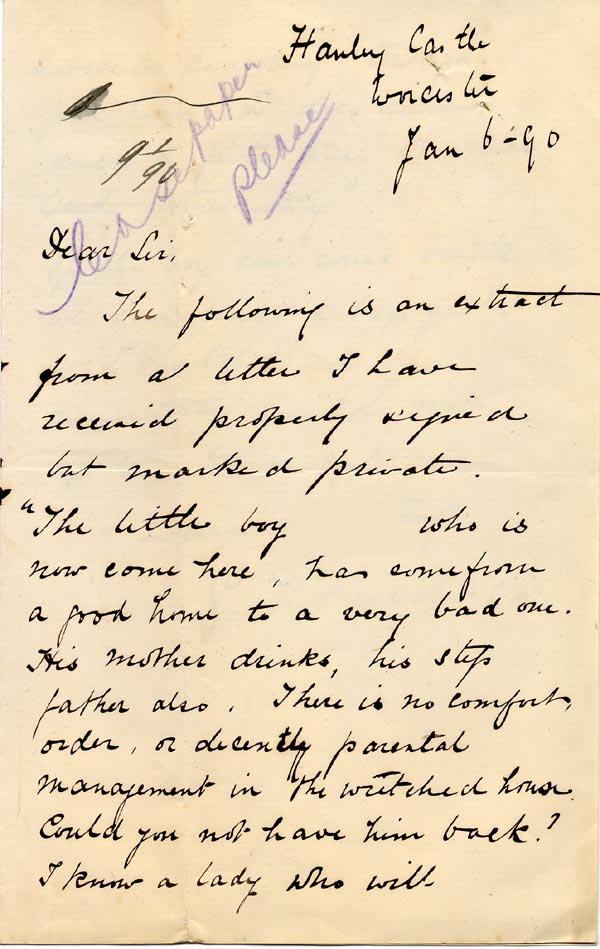 Hanley Castle
Worcester
Jan 6-90
9/1
90
Case paper
please
Dear Sir,
The following is an extract
from a letter I have
received properly signed
but marked private.
"The little boy who is
now come here, has come from
a good home to a very bad one.
His mother drinks, his step
father also. There is no comfort,
order, or decently parental
management in the wretched house.
Could you not have him back?
I know a lady who will